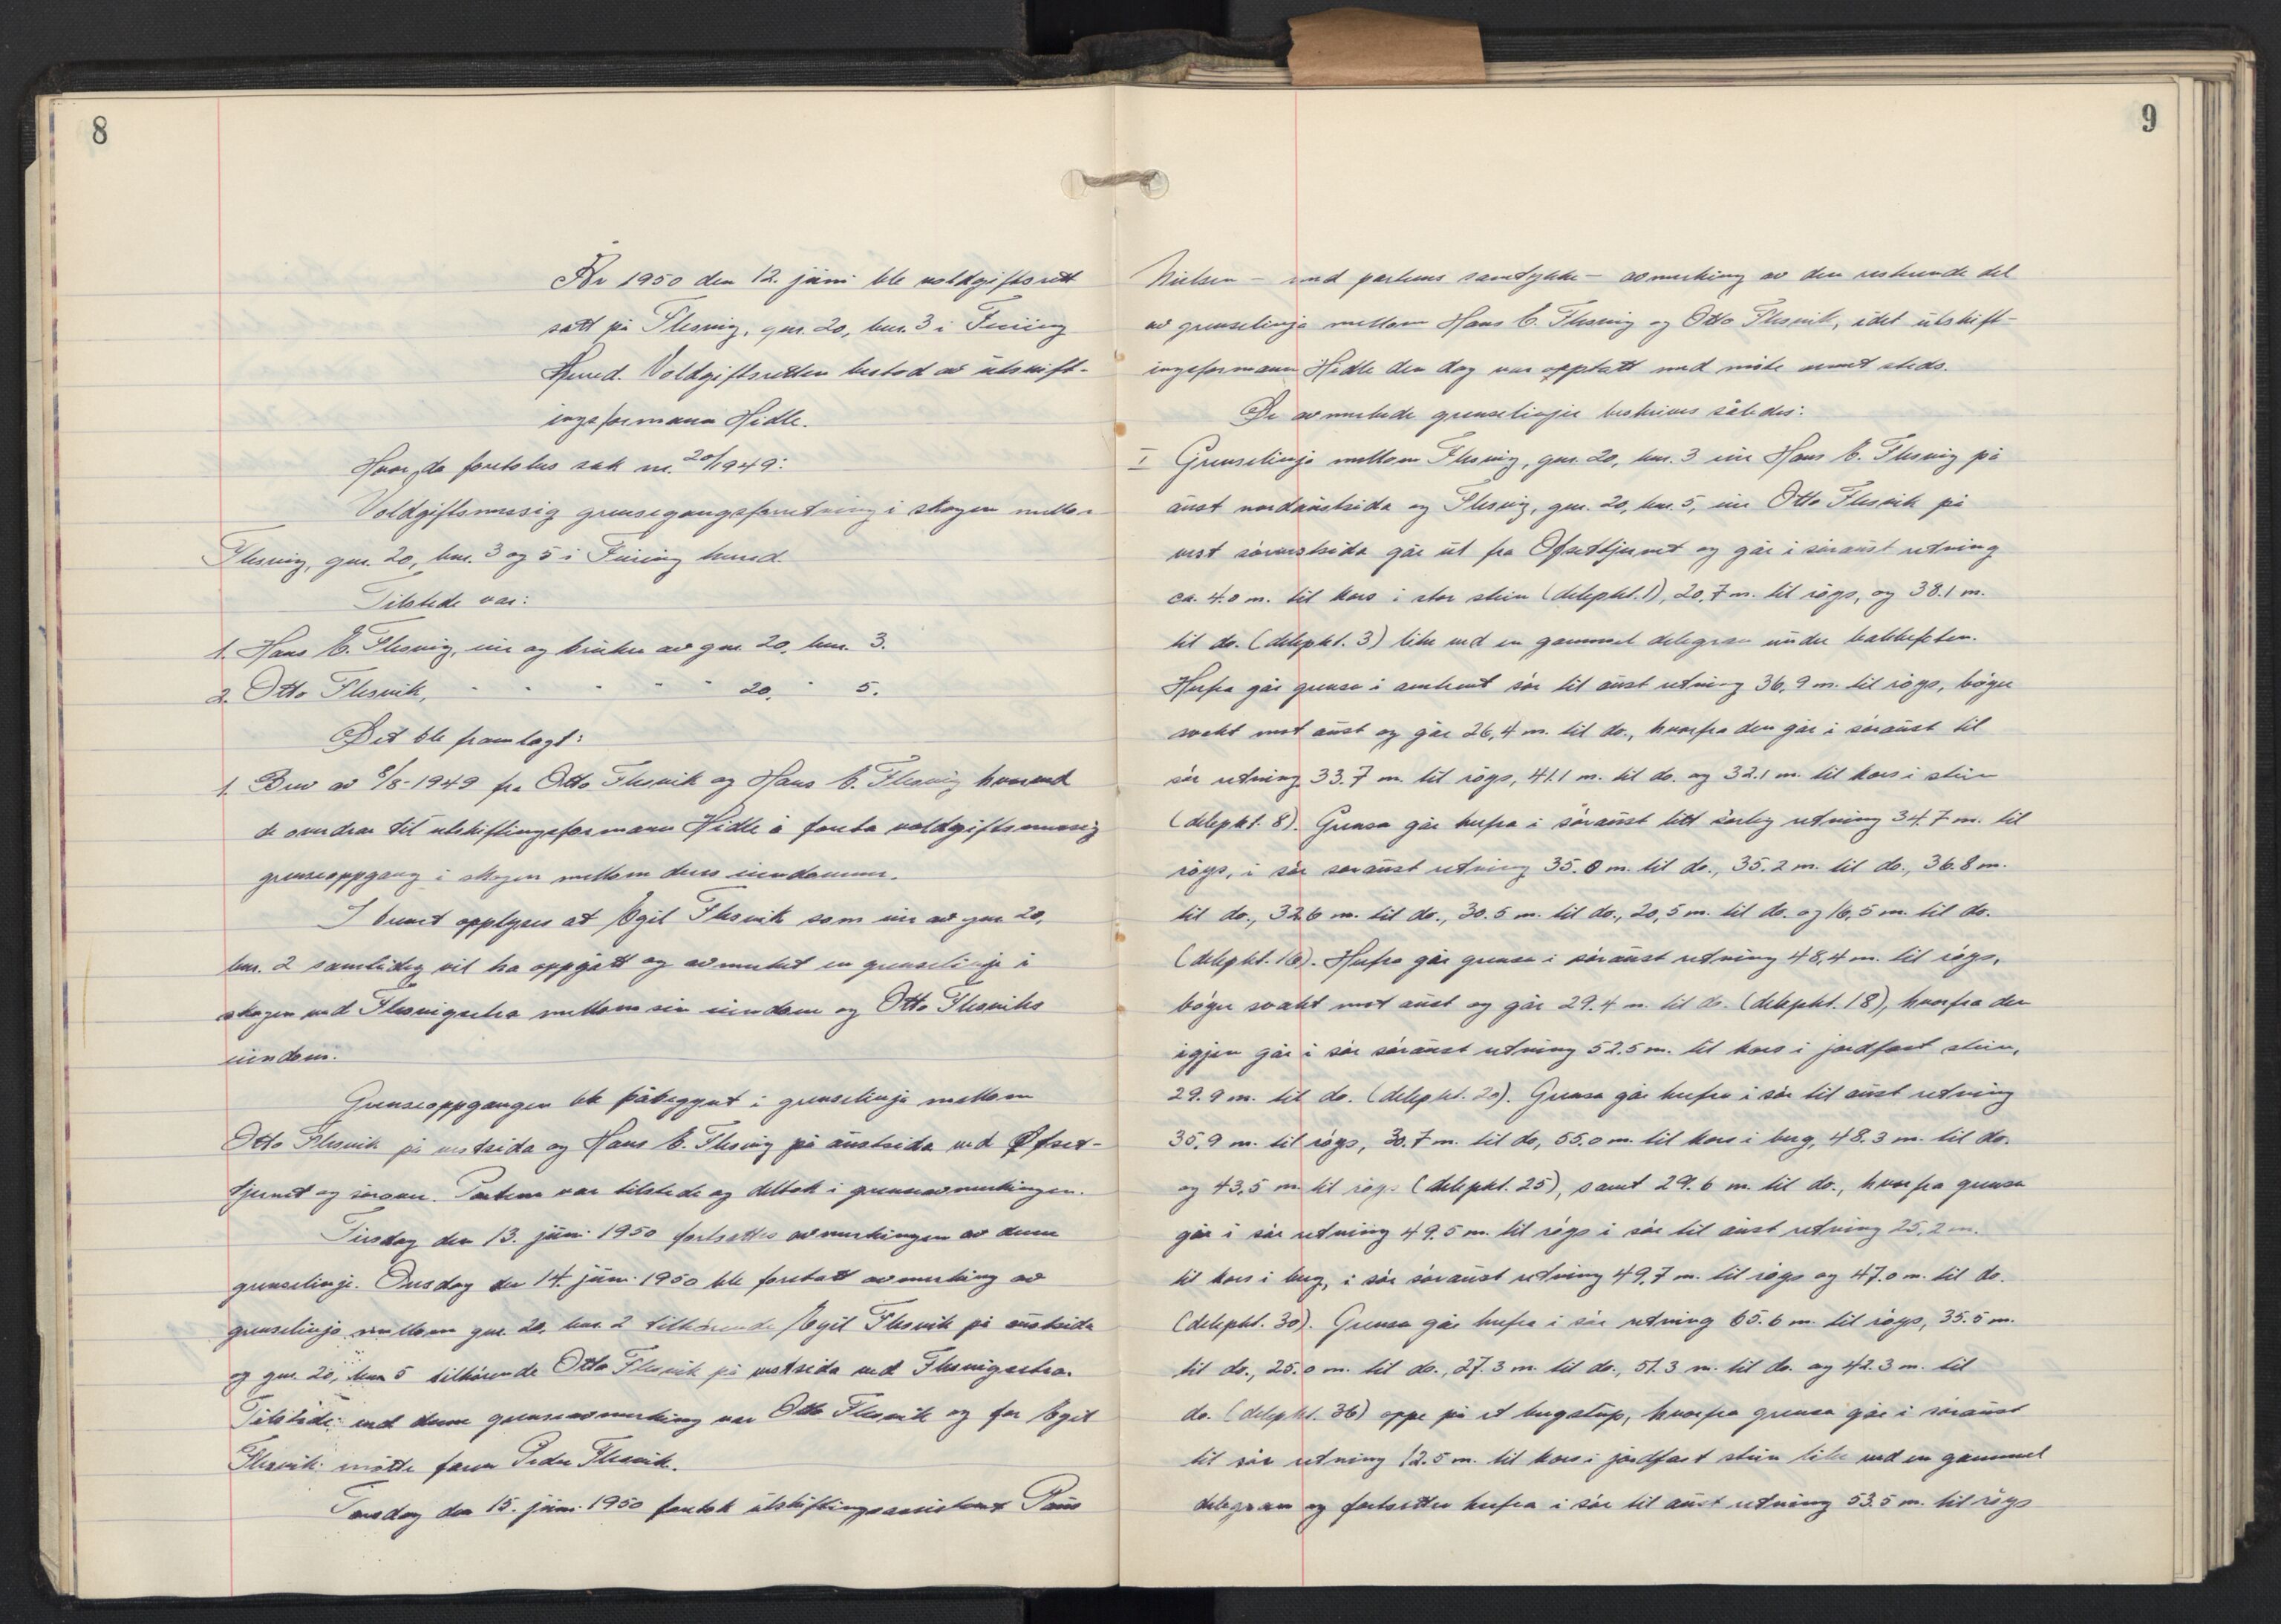 8
År 1950 den 12. juni ble voldgiftsrett
satt på Flesvig, gnr. 20, bnr. 3 i Furing
herred. Voldgiftsretten bestod av utskift-
ingsformann Hidle.
Hvor da foretokes sak nr. 20/1949:
Voldgiftsmessig grensegangsforretning i skogen mellom
Flesvig, gnr. 20, bnr. 3 og 5 i herred.
Tilstede var:
1. Hans E. Flesvig, eier og bruker av gnr. 20, bnr. 3.
2. Otto Flesvik, " " " " " 20, " 5.
Det ble framlagt:
1. Brev av 8/8-1949 fra Otto Flesvik og Hans E. Flesvig hvorved
de overdrar til utskiftingsformann Hidle å foreta voldgiftsmessig
grenseoppgang i skogen mellom deres eiendommer.
I brevet opplyses at Egil Flesvik som eier av gnr. 20,
bnr. 2 samtidig vil ha oppgått og avmerket en grenselinje i
skogen ved Flesvigsetra mellom sin eiendom og Otto Flesviks
eiendom.
Grenseoppgangen ble påbegynt i grenselinja mellom
Otto Flesvik på vestsida og Hans E. Flesvig på austsida ved Øfset-
tjernet og sørover. Partene var tilstede og deltok i grenseavmerkingen.
Tirsdag den 13. juni 1950 fortsattes avmerkingen av denne
grenselinje. Onsdag den 14. juni 1950 ble foretatt avmerking av
grenselinja mellom gnr. 20, bnr. 2 tilhørende Egil Flesvik på austsida
og gnr. 20, bnr 5 tilhørende Otto Flesvik på vestsida ved Flesvigsetra.
Tilstede ved denne grenseavmerking var Otto Flesvik og for Egil
Flesvik møtte faren Peder Flesvik.
Torsdag den 15. juni 1950 foretok utskiftingsassistent Paus
9
Nielsen – med partenes samtykke – avmerking av den resterende del
av grenselinja mellom Hans E. Flesvig og Otto Flesvik, idet utskift-
ingsformann Hidle den dag var opptatt med møte annet steds.
De avmerkede grenselinjer beskrives således:
I Grenselinja mellom Flesvig, gnr. 20, bnr. 3 eier Hans E. Flesvig på
aust nordaustsida og Flesvig, gnr. 20, bnr. 5, eier Otto Flesvik på
vest sørvestsida går ut fra Øfsettjernet og går i søraust retning
ca. 4.0 m. til kors i stor stein (delepkt. 1), 20,7 m. til røys, og 38.1 m.
til do. (delepkt. 3) like ved en gammel delegran under
Herfra går grensa i omtrent sør til aust retning 36,9 m. til røys, bøyer
svakt mot aust og går 26,4 m. til do., hvorfra den går i søraust til
sør retning 33.7 m. til røys, 41.1 m. til do. og 32.1 m. til kors i stein
(delepkt. 8). Grensa går herfra i søraust litt sørlig retning 34.7 m. til
røys, i sør søraust retning 35.0 m. til do., 35.2 m. til do., 36.8 m.
til do., 32.6 m. til do., 30.5 m. til do., 20,5 m. til do. og 16,5 m. til do.
(delepkt. 16). Herfra går grensa i søraust retning 48,4 m. til røys,
bøyer svakt mot aust og går 29.4 m. til do. (delepkt. 18), hvorfra den
igjen går i sør søraust retning 52.5 m. til kors i jordfast stein,
29.9 m. til do. (delepkt. 20). Grensa går herfra i sør til aust retning
35,9 m. til røys, 30.7 m. til do, 55.0 m. til kors i berg, 48.3 m. til do.
og 43,5 m. til røys (delepkt. 25), samt 29.6 m. til do., hvorfra grensa
går i sør retning 49.5 m. til røys i sør til aust retning 25,2 m.
til kors i berg, i sør søraust retning 49.7 m. til røys og 47.0 m. til do.
(delepkt. 30). Grensa går herfra i sør retning 65.6 m. til røys, 35.5 m.
til do., 25.0 m. til do., 27.3 m. til do., 51.3 m. til do. og 42.3 m. til
do. (delepkt. 36) oppe på et bergstup, hvorfra grensa går i søraust
til sør retning 12.5 m. til kors i jordfast stein like ved en gammel
delegran og fortsetter herfra i sør til aust retning 53.5 m. til røys